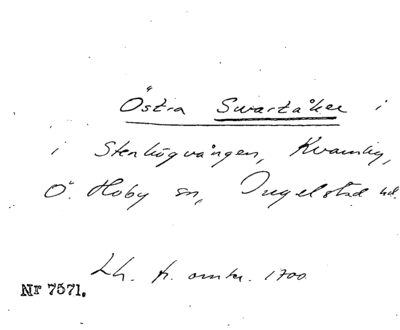 Östra Swartåker i
i Stenhögvången, Kvarnby,
Ö. Hoby sn, Ingelstad hd.
Lh. fr. omkr. 1700.
Nr 7571.